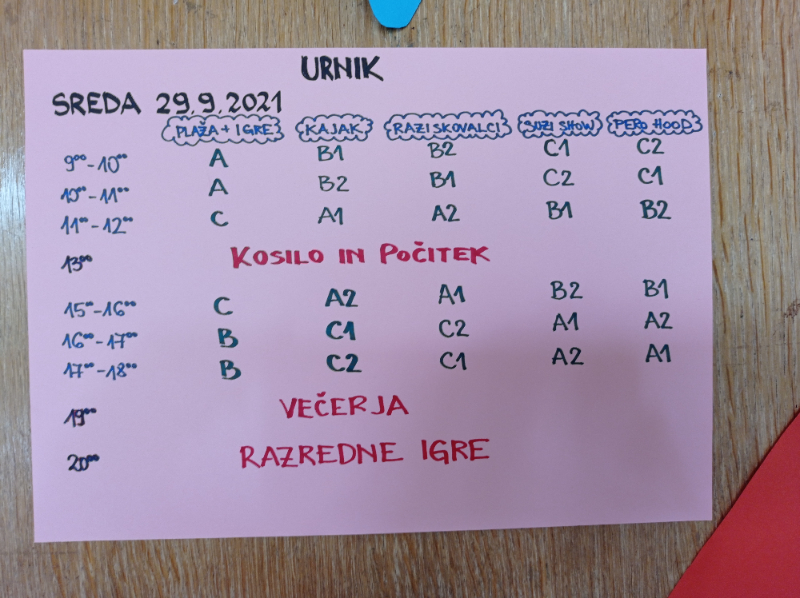 URNIK
SREDA 29.9.2021
PLAŽA + IGRE KAJAK RAZISKOVALCI SUZI SHOW PERO HOOD
9⁰⁰-10⁰⁰ A B1 B2 C1 C2
10⁰⁰-11⁰⁰ A B2 B1 C2 C1
11⁰⁰-12⁰⁰ C A1 A2 B1 B2
13⁰⁰ KOSILO IN POČITEK
15⁰⁰-16⁰⁰ C A2 A1 B2 B1
16⁰⁰-17⁰⁰ B C1 C2 A1 A2
17⁰⁰-18⁰⁰ B C2 C1 A2 A1
19⁰⁰ VEČERJA
20⁰⁰ RAZREDNE IGRE